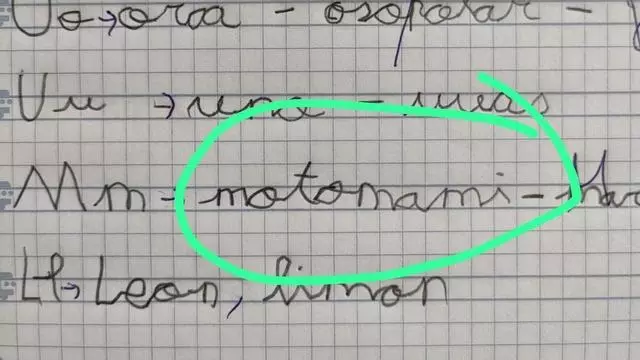 Oo → oroa - osopolar -
Uu → una - uvas
Mm - motomami -
Ll → Leon, limon